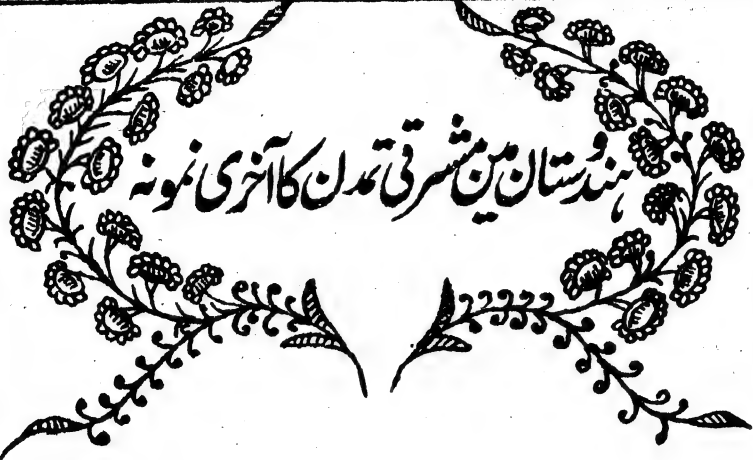 ہندوستان مین مشرقی تمدن کا آخری نمونہ